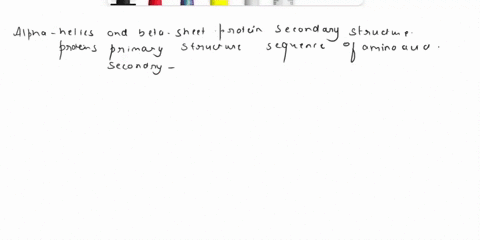 Alpha-helics and beta-sheet protein secondary structure.
proteins primary structure sequence of amino acid.
secondry -